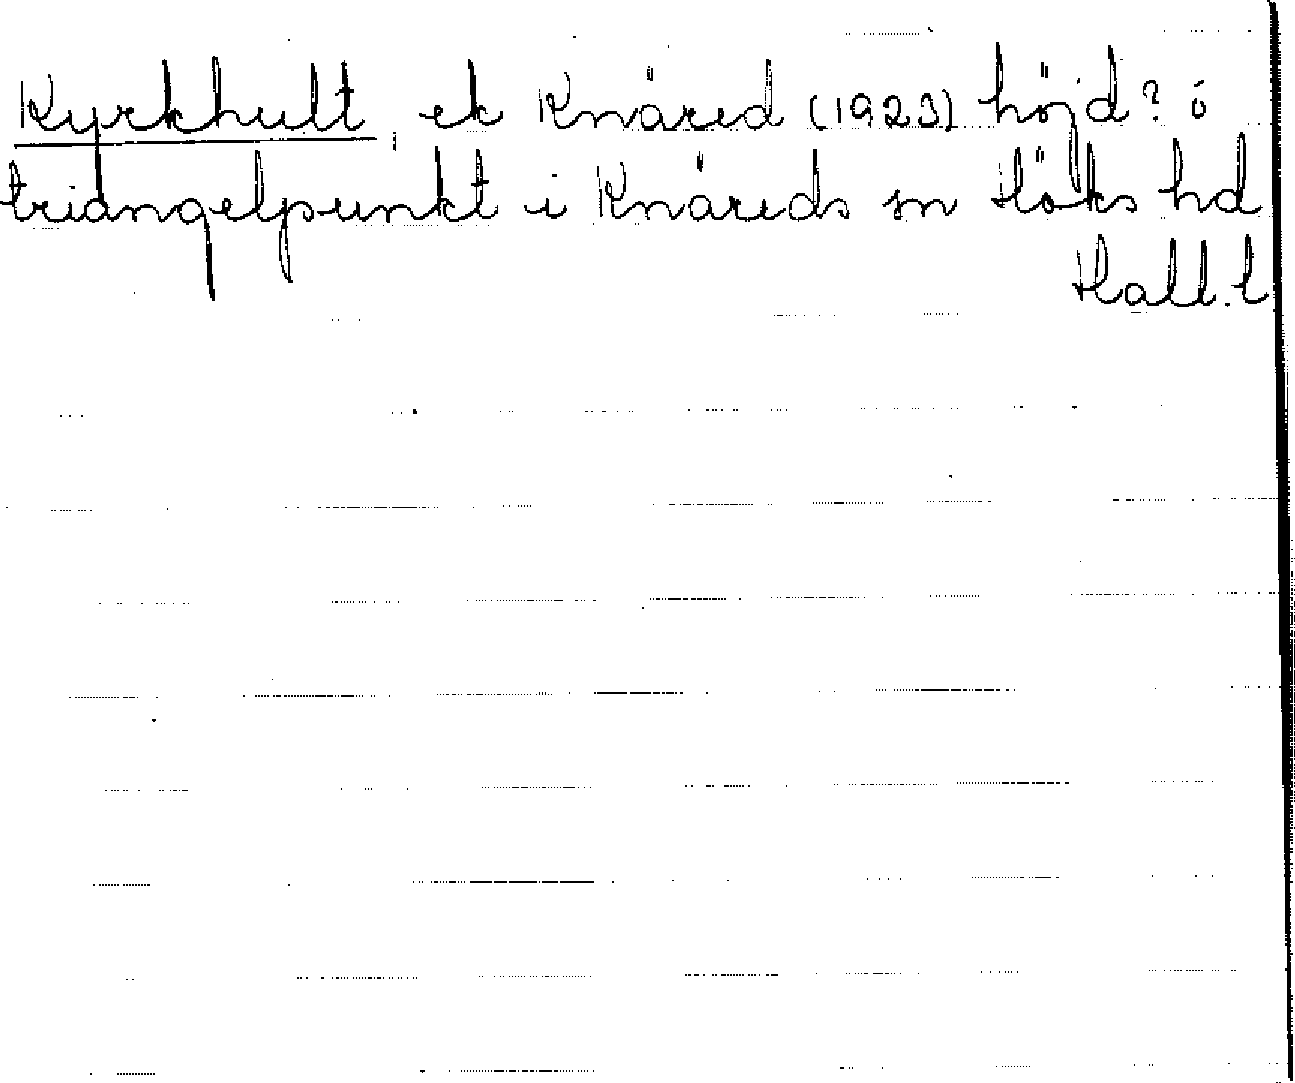 Kyrkhult, ek Knäred (1923) höjd? ö
triangelpunkt i Knäreds sn Höks hd
Hall. l